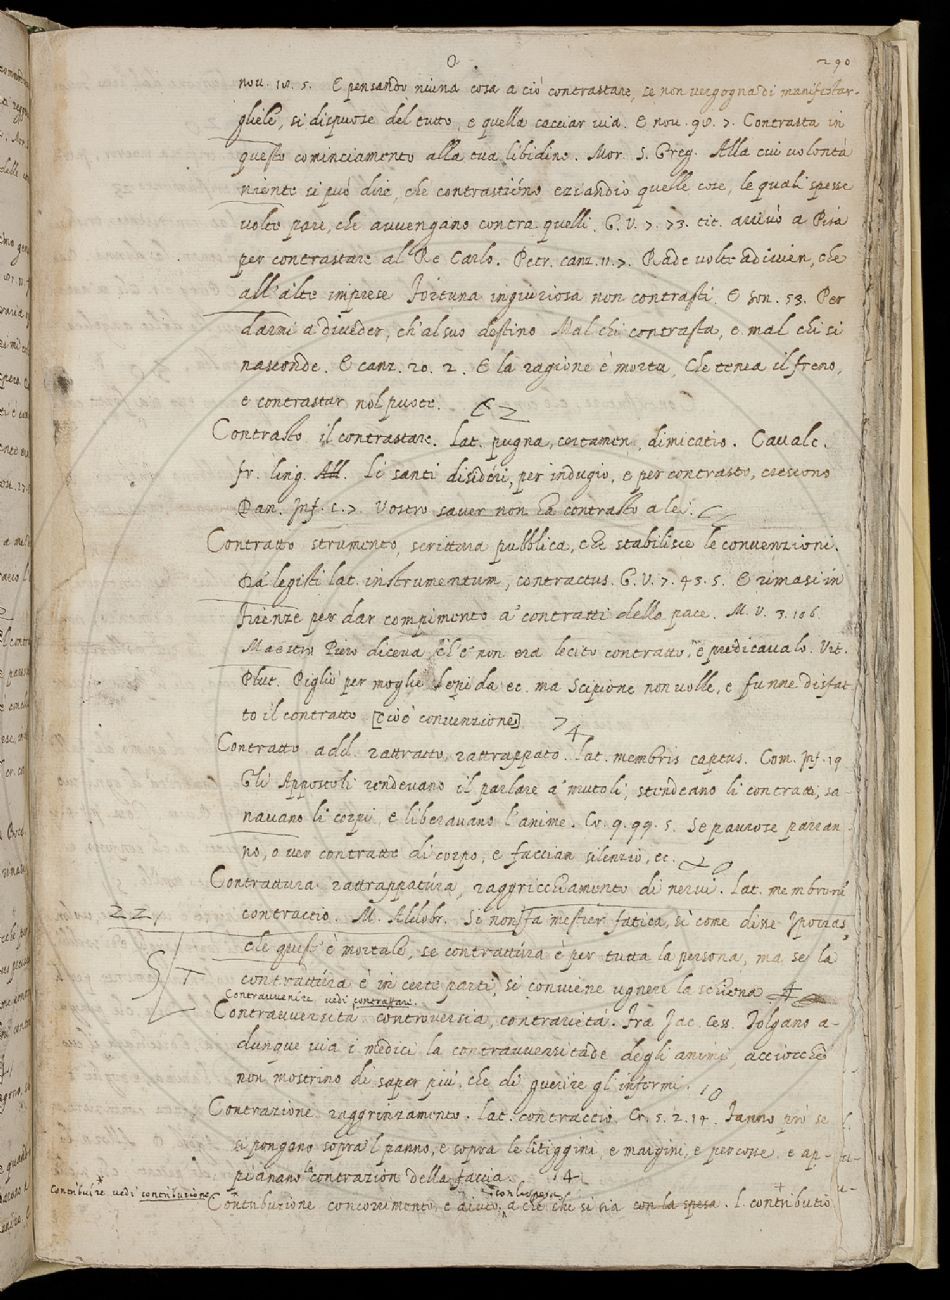 O
290
nou. 18. 5. E pensando niuna cosa a ciò contrastare, se non vergogna di manifestar-
gliele, si dispuose del tutto, e quella cacciar via. E nou. 98. 7. Contrasta in
questo cominciamento alla tua libidine. Mor. S. Greg. Alla cui volontà
niente si può dire, che contrastiéno eziandio quelle cose, le quali spesse
volte pare, che avvengano contra quelli. G. V. 7. 73. tit. arrivò a Pisa
per contrastare al Re Carlo. Petr. canz. 11. 7. Rade volte adivien, che
all'alte imprese Fortuna ingiuriosa non contrasti. E son. 53. Per
darmi a diveder, ch'al suo destino Mal chi contrasta, e mal chi si
nasconde. E canz. 20. 2. E la ragione è morta, Che tenea il freno,
e contrastar nol puote.
Contrasto il contrastare. Lat. pugna, certamen, dimicatio. Cavalc.
fr. ling. Li santi disidéri, per indugio, e per contrasto, crescono
Dan. Inf. c. 7. Vostro saver non ha contrasto a lei.
Contratto strumento, scrittura pubblica, che stabilisce le convenzioni.
Da' legisti lat. instrumentum, contractus. G. V. 7. 43. 5. E rimasi in
Firenze per dar compimento a' contratti della pace. M. V. 3. 106.
Maestro Piero diceva, ch'e' non era lecito contratto, e predicavalo. Vit.
Plut. Pigliò per moglie Lepida ec. ma Scipione non volle, e funne disfat-
to il contratto [cioè convenzione]
74
Contratto add. rattratto, rattrappato. lat. membris captus. Com. Inf. 19
Gli Appostoli rendevano il parlare a' mutoli, stendeano li contratti, sa-
navano li corpi, e liberavano l'anime. Cr. 9. 99. 5. Se paurose parran-
no, o ver contratte di corpo, e faccian silenzio, ec.
20
Contrattura rattrappatúra, raggricchiamento di nervi. lat. membrorum
22
contractio. M. Aldobr. Si non fa mestier fatica, sì come dice Ipocras,
che quest' è mortale, se contrattúra è per tutta la persona, ma se la
contrattúra è in certe parti, si conviene ugnere la schiena
Contravvenire vedi contrastare.
Contravversità controversia, contrarietà. Fra Jac. Cess. Tolgano a-
dunque via i medici la contravversitade degli animi, acciocché
non mostrino di saper più, che di guerire gl'informi.
10
Contrazione raggrinzamento. lat. contractio. Cr. 5. 2. 14. Fanno prò se
si pongono sopra'l panno, e sopra le litiggini, e margini, e percosse, e ap-
pianano la contrazion della faccia.
14
Contribuire vedi contribuzione
con la spesa
Contribuzione concorrimento, e aiuto, a che chi si sia con la spesa. l. contributio